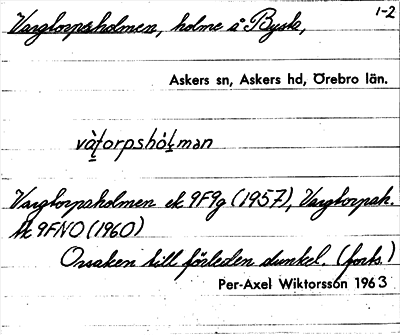 1-2
Vargtorpsholmen, holme å Bysta,
Askers sn, Askers hd, Örebro län.
vàṯorpshòḻmən
Vargtorpsholmen ek 9F9g (1957), Vargtorpsh.
tk 9FNO (1960)
Orsaken till förleden dunkel. (forts.)
Per-Axel Wiktorsson 1963